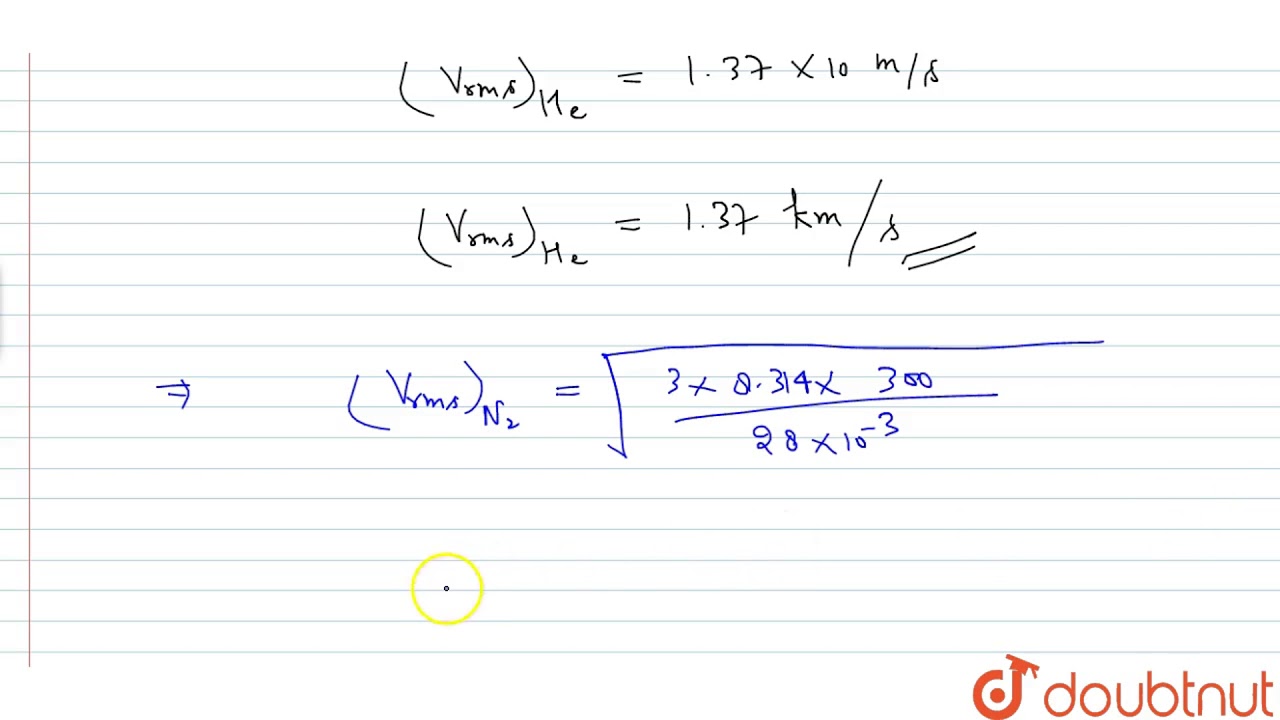 (Vrms)He = 1.37 × 10 m/s
(Vrms)He = 1.37 km/s
⇒ (Vrms)N₂ = √(3 × 8.314 × 300 / 28 × 10⁻³)
doubtnut